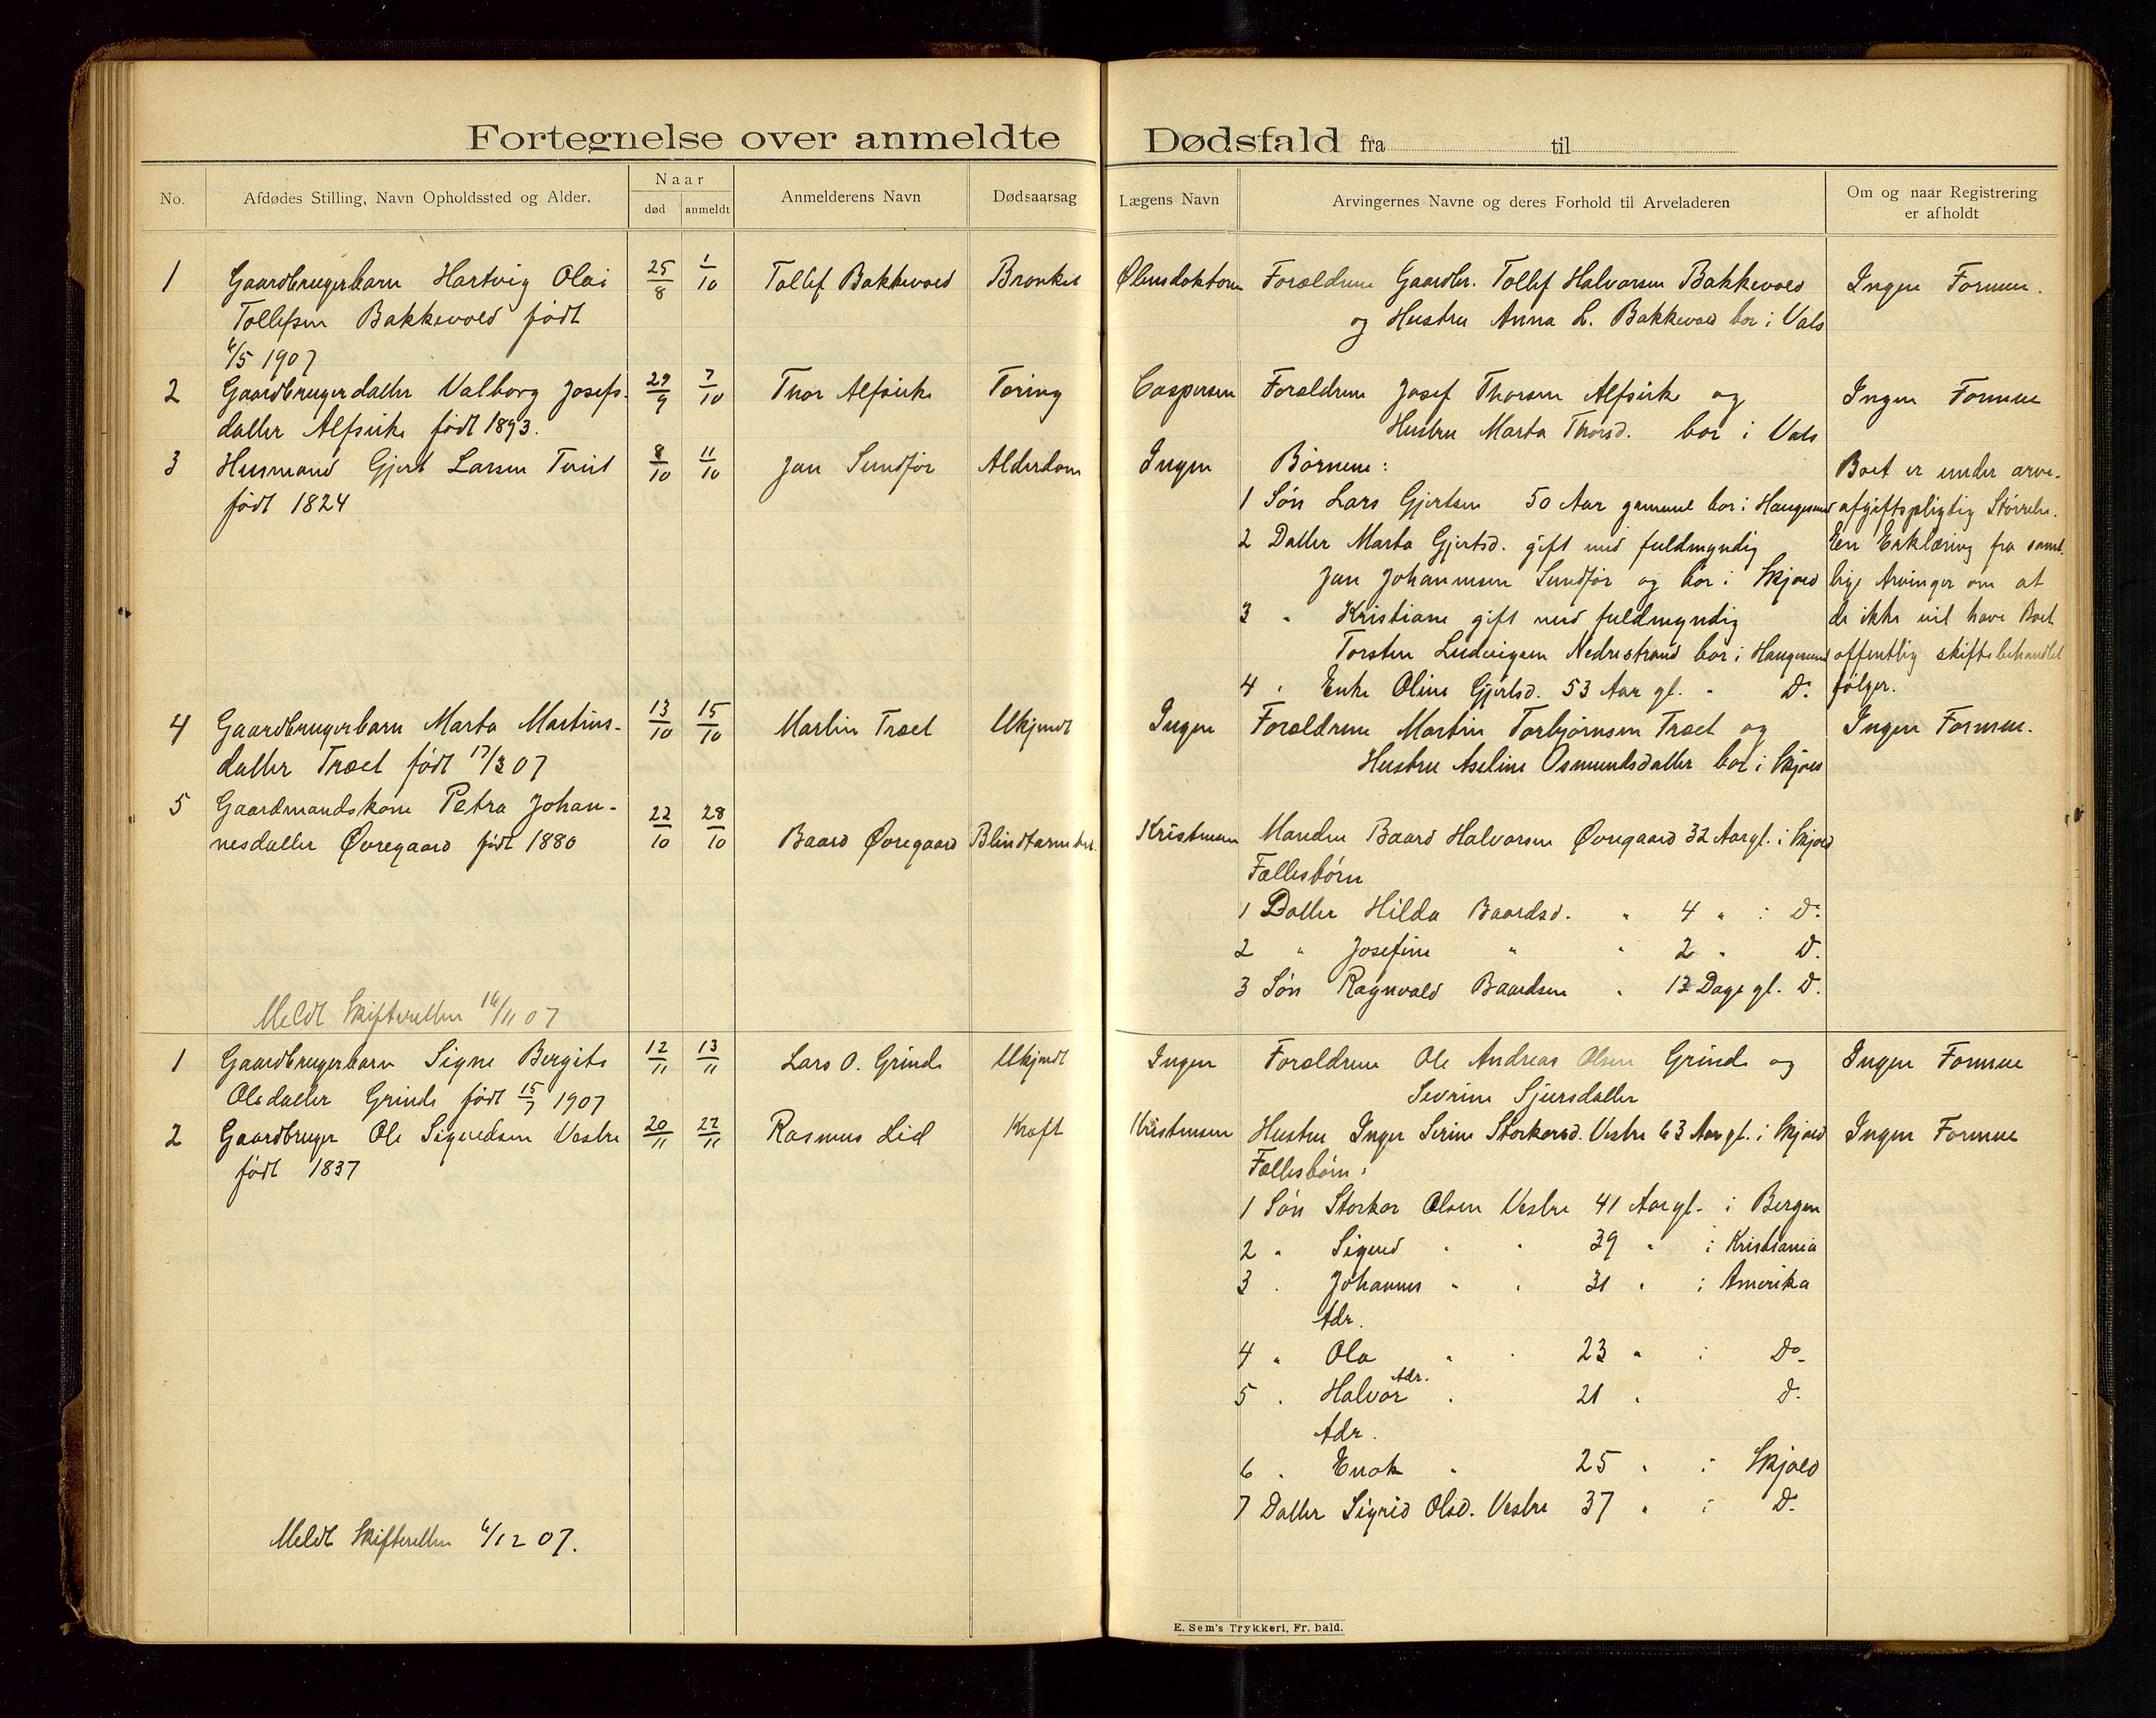 Fortegnelse over anmeldte Dødsfald fra til
No.
Afdødes Stilling, Navn Opholdssted og Alder.
Naar
død
anmeldt
Anmelderens Navn
Dødsaarsag
Lægens Navn
Arvingernes Navne og deres Forhold til Arveladeren
Om og naar Registrering
er afholdt
1 Gaardbrugerbarn Hartvig Olai 25/8 1/10 Tollef Bakkevold Bronkit Ølensdoktoren Forældrene Gaardbr. Tollef Halvorsen Bakkevold Ingen Formue.
Tollefsen Bakkevold født og Hustru Anna L. Bakkevold bor i Vats
6/5 1907
2 Gaardbrugerdatter Valborg Josefs- 29/9 7/10 Thor Alfsvik Tæring Caspersen Forældrene Josef Thorsen Alfsvik og Ingen Formue
datter Alfsvik født 1893. Hustru Marta Thorsd. bor i Vats
3 Husmand Gjert Larsen Tveit 8/10 11/10 Jan Sundfør Alderdom Ingen Børnene: Boet er under arve-
født 1824 1 Søn Lars Gjertsen 50 Aar gammel bor i Haugesund afgiftspligtig Størrelse.
2 Datter Marta Gjertsd. gift med fuldmyndig En Erklæring fra samt-
Jan Johannesen Sundfør og bor i Skjold lige Arvinger om at
3 " Kristiane gift med fuldmyndig de ikke vil have Boet
Torsten Ludvigsen Nedrestrand bor i Haugesund offentlig skiftebehandlet
4 " Enke Oline Gjertsd. 53 Aar gl. " Do. følger.
4 Gaardbrugerbarn Marta Martins- 13/10 15/10 Martin Træet Ukjendt Ingen Forældrene Martin Torbjørnsen Træet og Ingen Formue.
datter Træet født 17/3 07 Hustru Aseline Osmundsdatter bor i Skjold
5 Gaardmandskone Petra Johan- 22/10 28/10
nesdatter Øvregaard født 1880 Baard Øvregaard Blindtarmbet. Kristensen Manden Baard Halvorsen Øvregaard 32 Aar gl. i Skjold
Fællesbørn
1 Datter Hilda Baardsd. " 4 " i Do.
2 " Josefine " " 2 " Do.
3 Søn Ragnvald Baardsen " 12 Dage gl. Do.
Meldt Skifteretten 16/11 07
1 Gaardbrugerbarn Signe Bergite 12/11 13/11 Lars O. Grinde Ukjendt Ingen Forældrene Ole Andreas Olsen Grinde og Ingen Formue
Olsdatter Grinde født 15/7 1907 Sevrine Sjursdatter
2 Gaardbruger Ole Sigvedsen Vestre 20/11 22/11 Rasmus Lid Kræft Kristensen Hustru Inger Serine Storkorsd. Vestre 63 Aar gl. i Skjold Ingen Formue
født 1837 Fællesbørn:
1 Søn Storkor Olsen Vestre 41 Aar gl. i Bergen
2 " Sigved " " 39 " i Kristiania
3 " Johannes " " 31 " i Amerika
Adr.
4 " Ola " " 23 " i Do.
Adr.
5 " Halvor " 21 " Do.
Adr.
6 " Enok " 25 " i Skjold
7 Datter Sigrid Olsd. Vestre 37 " i Do.
Meldt Skifteretten 6/12 07.
E. Sem's Trykkeri, Fr. hald.